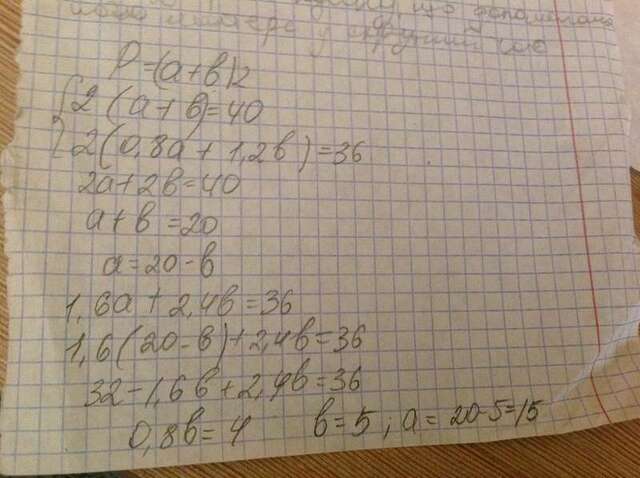 P=(a+b)2
{ 2(a+b)=40
2(0,8a+1,2b)=36
2a+2b=40
a+b=20
a=20-b
1,6a+2,4b=36
1,6(20-b)+2,4b=36
32-1,6b+2,4b=36
0,8b=4 b=5; a=20-5=15